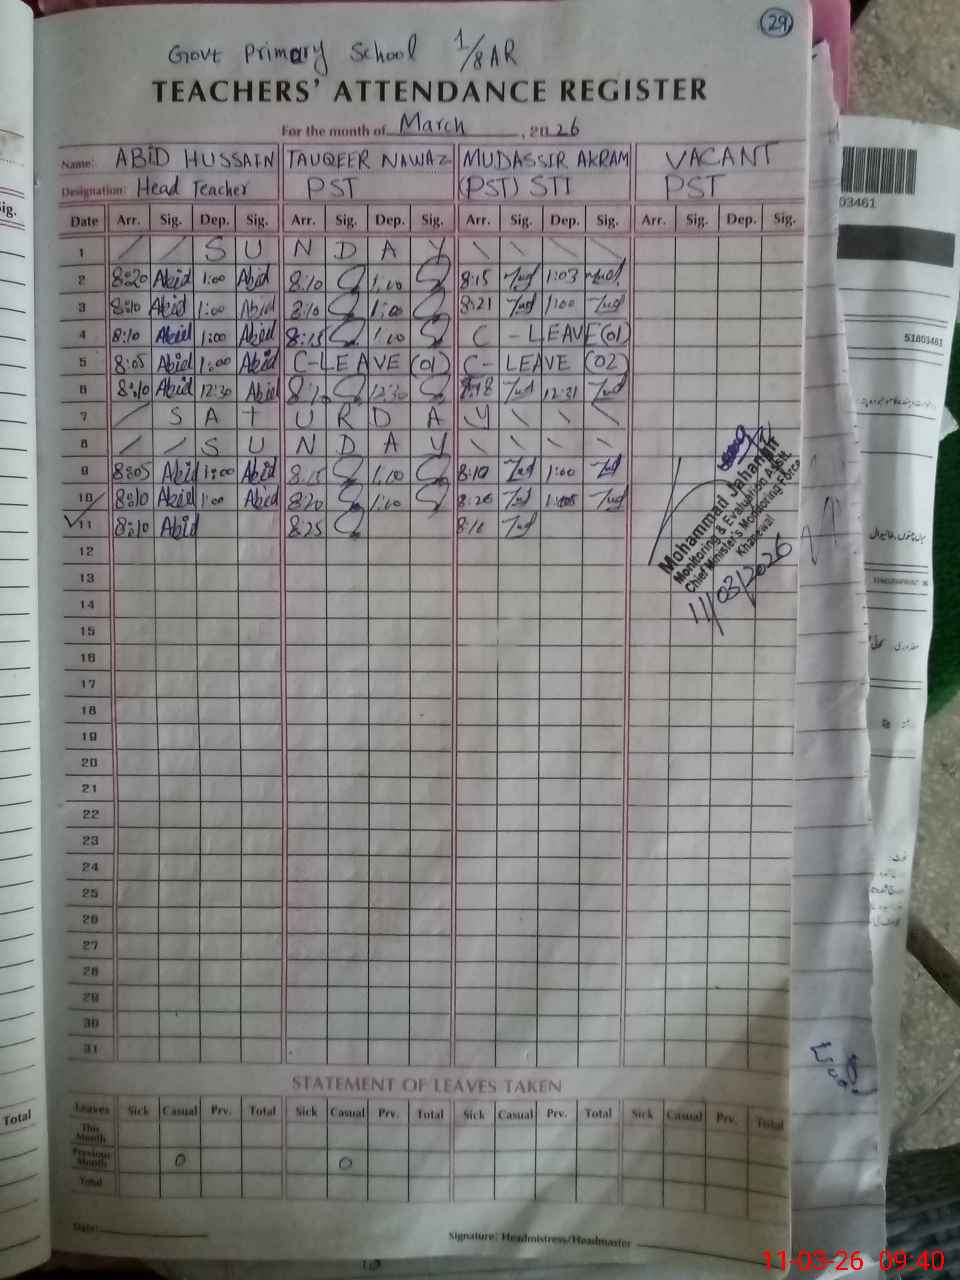 29
Govt Primary School 1/8AR
TEACHERS' ATTENDANCE REGISTER
For the month of March, 2026
Name: ABID HUSSAIN TAUQEER NAWAZ MUDASSIR AKRAM VACANT
Designation: Head Teacher PST (PST) STI PST
Date Arr. Sig. Dep. Sig. Arr. Sig. Dep. Sig. Arr. Sig. Dep. Sig. Arr. Sig. Dep. Sig.
1 S U N D A Y
2 8:20 Abid 1:00 Abid 8:10 1:10 8:15 1:03
3 8:10 Abid 1:00 Abid 8:10 1:00 8:21 1:00
4 8:10 Abid 1:00 Abid 8:15 1:10 C - LEAVE (01)
5 8:05 Abid 1:00 Abid C-LEAVE (01) C- LEAVE (02)
6 8:10 Abid 12:30 Abid 12:30 8:18 12:31
7 S A T U R D A Y
8 S U N D A Y
9 8:05 Abid 1:00 Abid 8:15 1:10 8:10 1:00
10 8:10 Abid 1:00 Abid 8:20 1:10 8:26
11 8:10 Abid 8:25 8:10
Mohammad Jahangir
Monitoring & Evaluation Asstt.
Chief Minister's Monitoring Force
Khanewal
11/03/2026
12
13
14
15
16
17
18
19
20
21
22
23
24
25
26
27
28
29
30
31
STATEMENT OF LEAVES TAKEN
Leaves Sick Casual Prv. Total Sick Casual Prv. Total Sick Casual Prv. Total Sick Casual Prv. Total
This Month
Previous Month 0 0
Total
Date:
Signature: Headmistress/Headmaster
Sig.
Total
03461
51803461
11-03-26 09:40